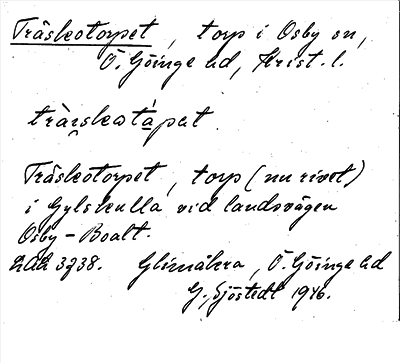 Träskotorpet, torp i Osby sn,
Ö. Göinge hd, Krist. l.
träi̯skotàpat
Träskotorpet, torp (nu rivet)
i Gylskulla vid landsvägen
Osby - Boalt.
LAL 3738. Glimåkra, Ö. Göinge hd
G. Sjöstedt 1946.